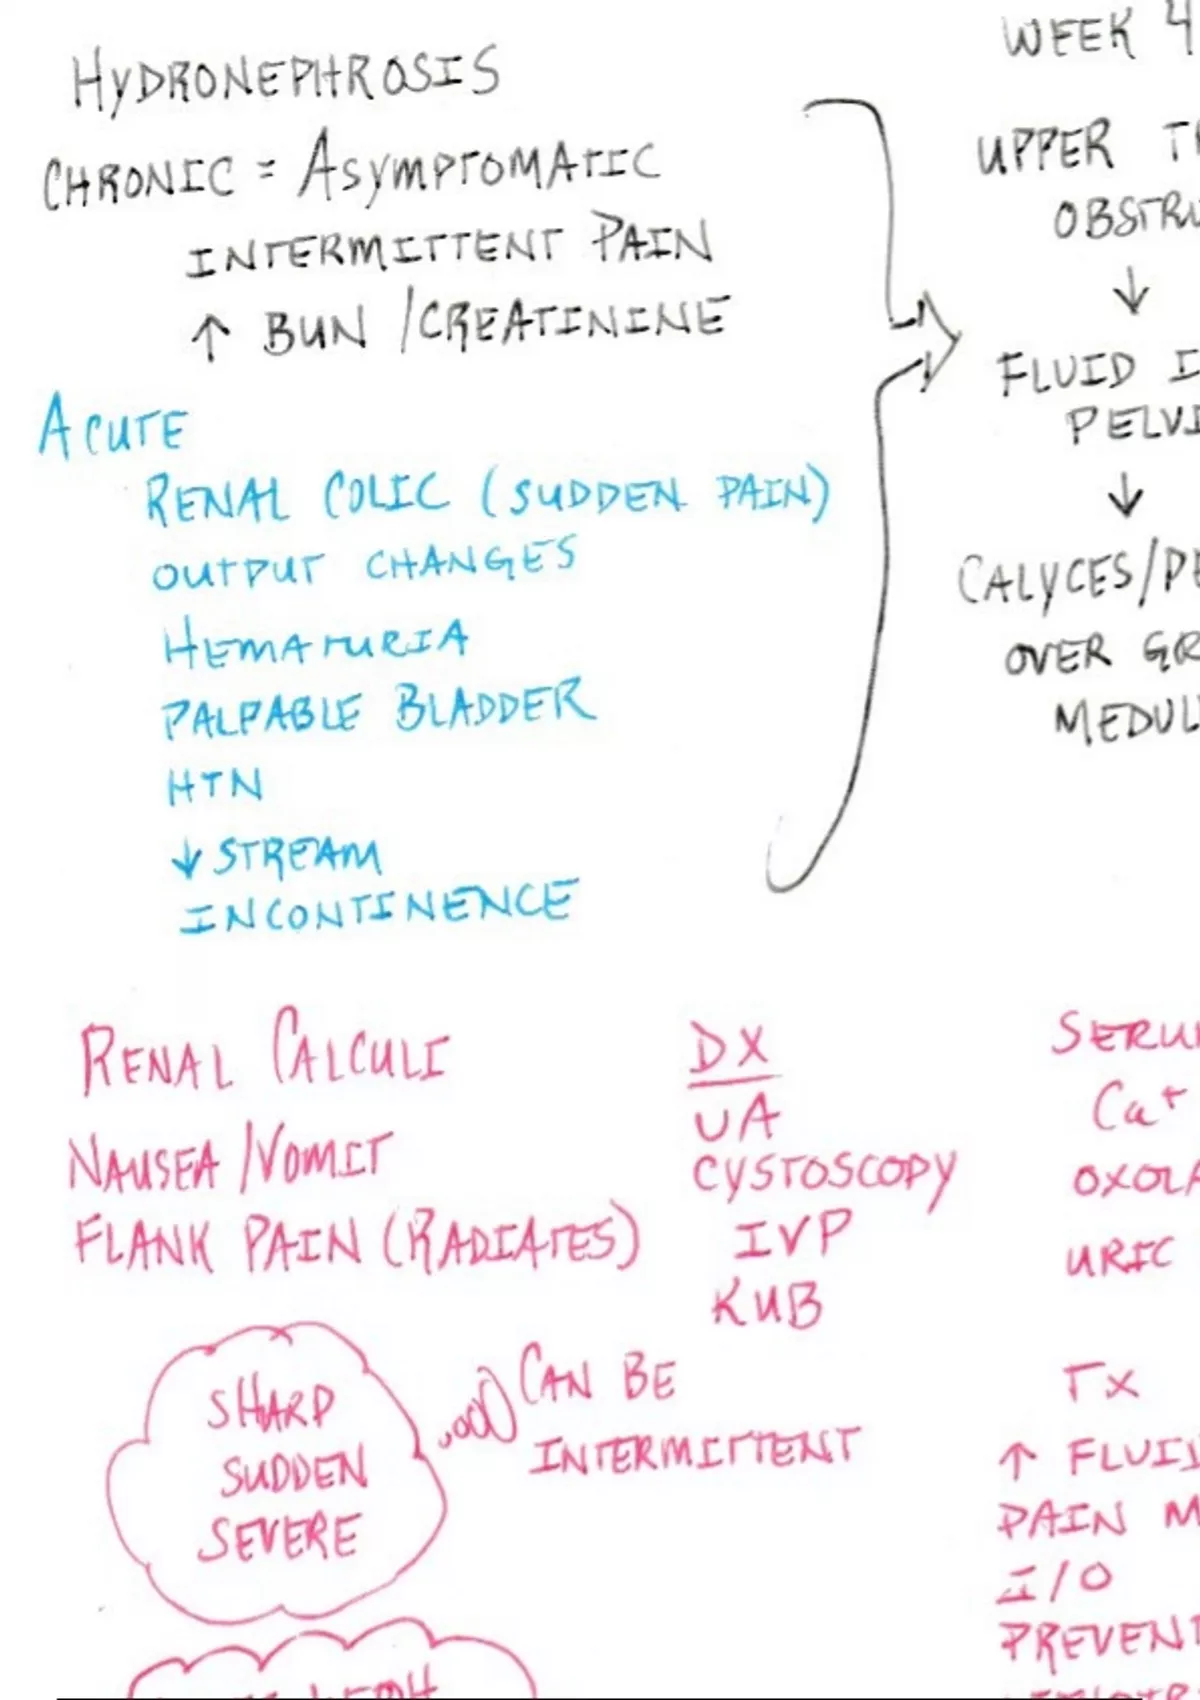 HYDRONEPHROSIS
CHRONIC = ASYMPTOMATIC
INTERMITTENT PAIN
↑ BUN /CREATININE
ACUTE
RENAL COLIC (SUDDEN PAIN)
OUTPUT CHANGES
HEMATURIA
PALPABLE BLADDER
HTN
↓ STREAM
INCONTINENCE
WEEK 4
UPPER
↓
FLUID
↓
CALYCES/
OVER
RENAL CALCULI
NAUSEA /VOMIT
FLANK PAIN (RADIATES)
SHARP
SUDDEN
SEVERE
CAN BE
INTERMITTENT
DX
UA
CYSTOSCOPY
IVP
KUB
Ca+
URIC
TX
↑
PAIN
I/O